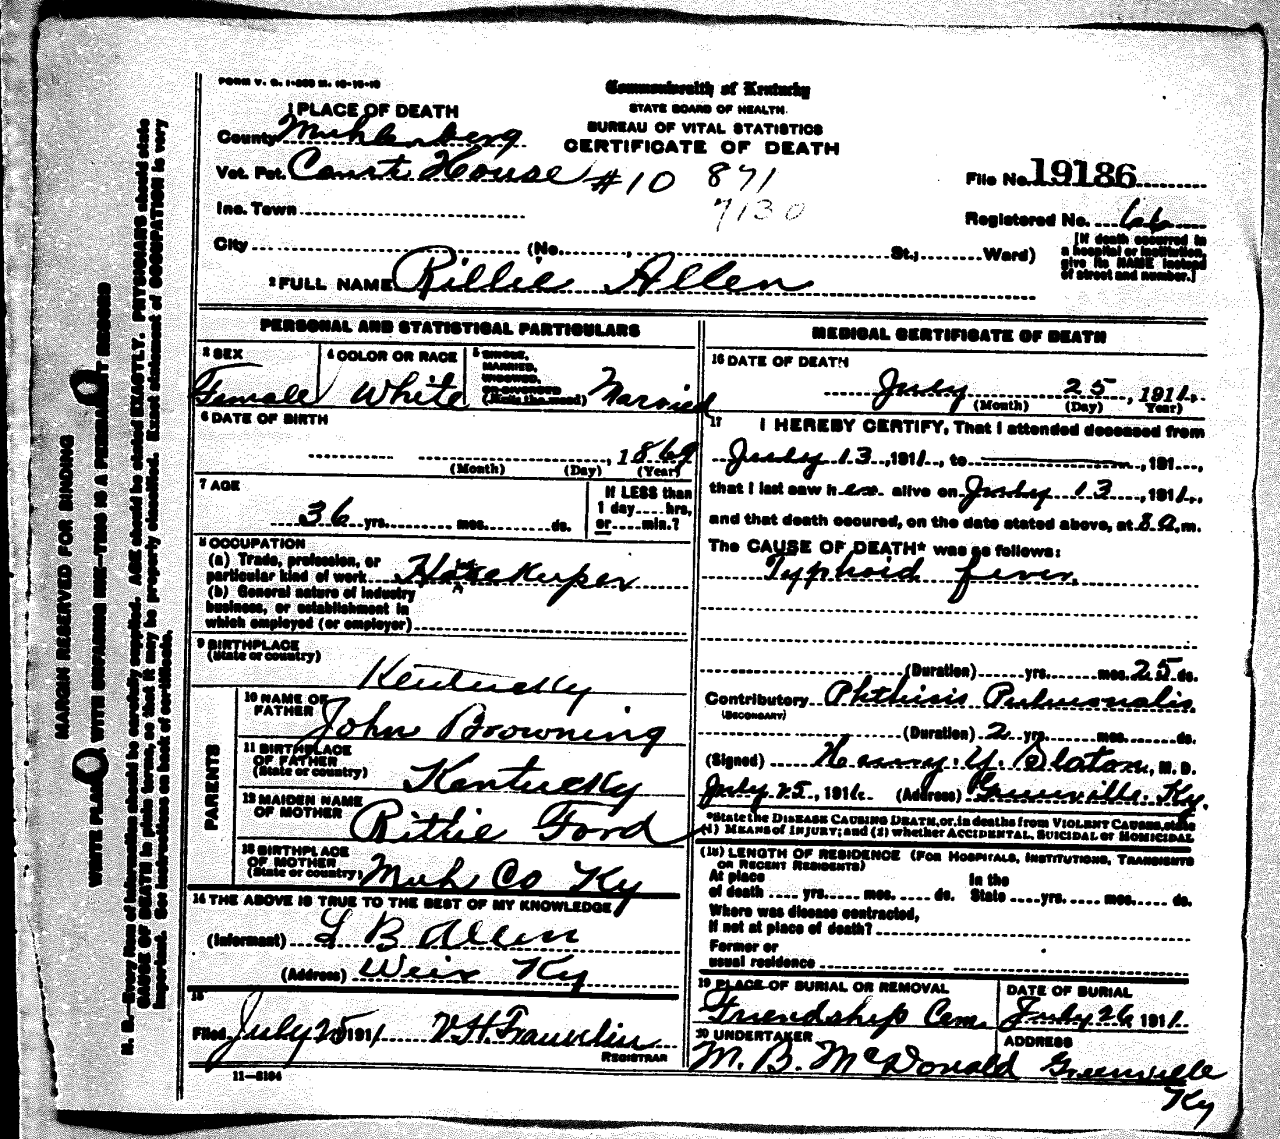 FORM V. S. 1-
Commonwealth of Kentucky
STATE BOARD OF HEALTH
BUREAU OF VITAL STATISTICS
CERTIFICATE OF DEATH
1 PLACE OF DEATH
County Muhlenberg
Vot. Pct. Court House #10 871
7130
File No. 19186
Inc. Town
Registered No. 66
City (No. , St.; Ward)
[If death occurred in
a hospital or institution,
give its NAME instead
of street and number.]
2 FULL NAME Rillie Allen
PERSONAL AND STATISTICAL PARTICULARS
3 SEX Female
4 COLOR OR RACE White
5 SINGLE,
MARRIED,
WIDOWED,
OR DIVORCED
(Write the word) Married
6 DATE OF BIRTH
, 1869
(Month) (Day) (Year)
7 AGE
36 yrs. mos. ds.
If LESS than
1 day hrs.
or min.?
8 OCCUPATION
(a) Trade, profession, or
particular kind of work Housekeeper
(b) General nature of industry
business, or establishment in
which employed (or employer)
9 BIRTHPLACE
(State or country)
Kentucky
PARENTS
10 NAME OF
FATHER John Browning
11 BIRTHPLACE
OF FATHER
(State or country) Kentucky
12 MAIDEN NAME
OF MOTHER Rithie Ford
13 BIRTHPLACE
OF MOTHER
(State or country) Muh Co Ky
14 THE ABOVE IS TRUE TO THE BEST OF MY KNOWLEDGE
(Informant) L B Allen
(Address) Weir Ky
15
Filed July 25 1911 V.H. Franklin
REGISTRAR
11-5184
MEDICAL CERTIFICATE OF DEATH
16 DATE OF DEATH
July 25, 1911.
(Month) (Day) (Year)
17 I HEREBY CERTIFY, That I attended deceased from
July 13, 1911, to , 191 ,
that I last saw her alive on July 13, 1911.,
and that death occured, on the date stated above, at 8 a.m.
The CAUSE OF DEATH* was as follows:
Typhoid fever.
(Duration) yrs. mos. 25 ds.
Contributory Phthisis Pulmonalis
(SECONDARY)
(Duration) 2 yrs. mos. ds.
(Signed) Y. Slaton, M. D.
July 25, 1911. (Address) Greenville. Ky.
*State the DISEASE CAUSING DEATH, or, in deaths from VIOLENT CAUSES, state
(1) MEANS of INJURY; and (2) whether ACCIDENTAL, SUICIDAL or HOMICIDAL
(18) LENGTH OF RESIDENCE (FOR HOSPITALS, INSTITUTIONS, TRANSIENTS
OR RECENT RESIDENTS)
At place
of death yrs. mos. ds.
In the
State yrs. mos. ds.
Where was disease contracted,
If not at place of death?
Former or
usual residence
19 PLACE OF BURIAL OR REMOVAL
Friendship Cem.
DATE OF BURIAL
July 26, 1911.
20 UNDERTAKER
M. B. McDonald
ADDRESS
Greenville
Ky
MARGIN RESERVED FOR BINDING
WRITE PLAINLY, WITH UNFADING INK—THIS IS A PERMANENT RECORD
N. B.—Every item of information should be carefully supplied. AGE should be stated EXACTLY. PHYSICIANS should state
CAUSE OF DEATH in plain terms, so that it may be properly classified. Exact statement of OCCUPATION is very
important. See instructions on back of certificate.